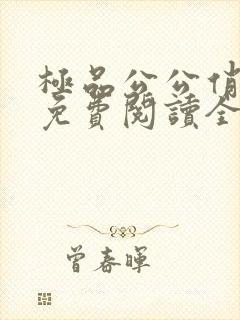 極品公公俏
免費閱讀全
曾春暉